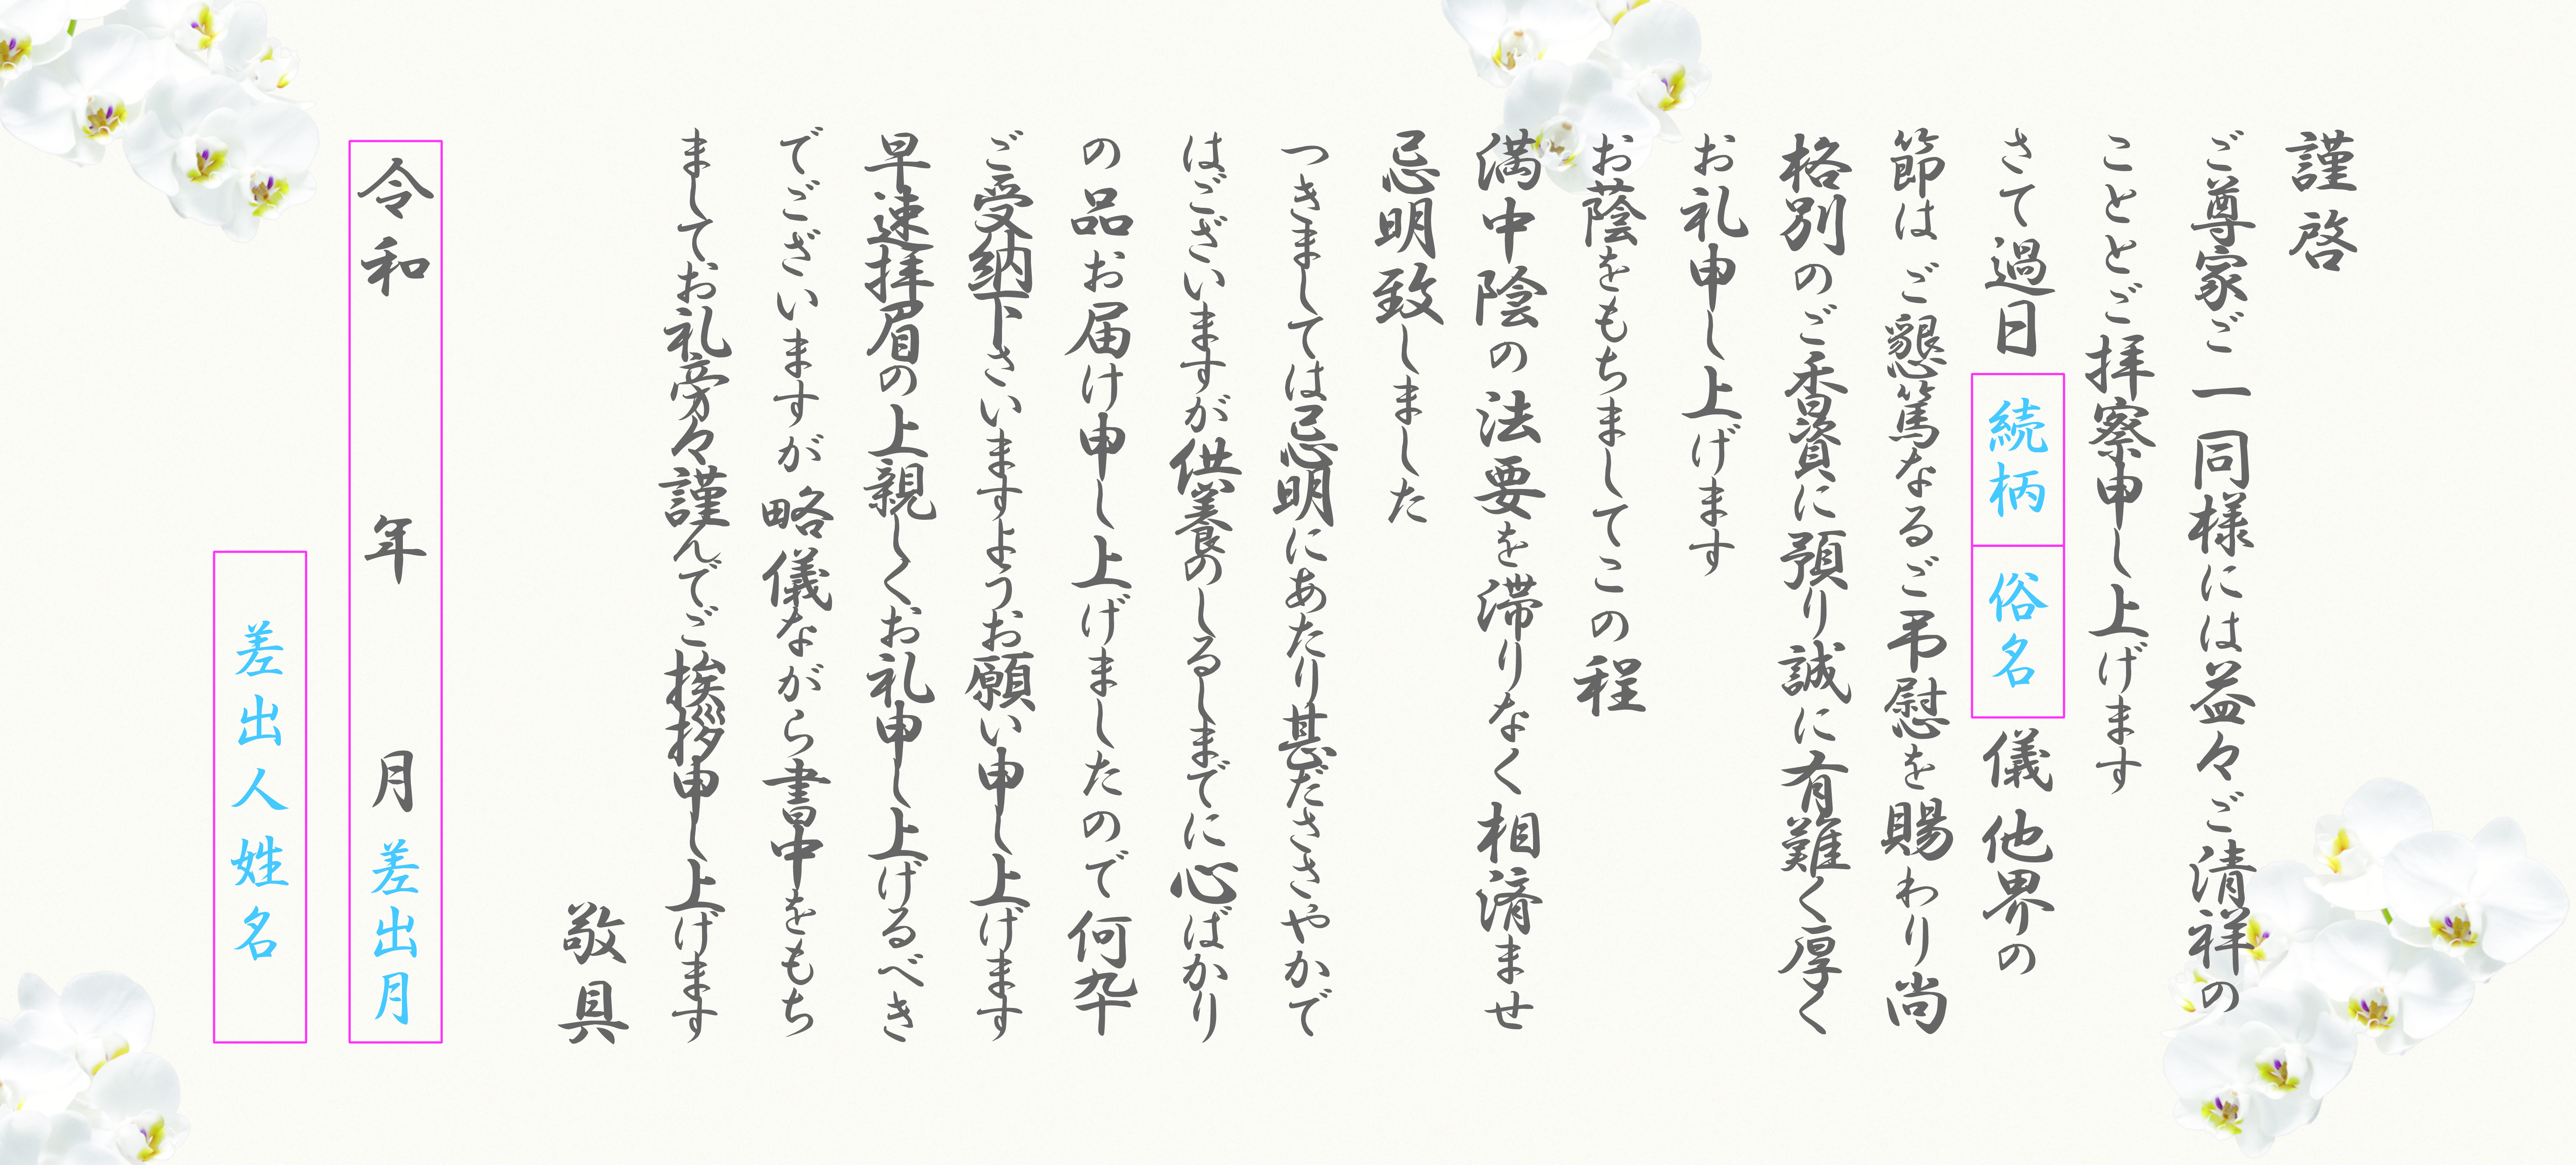 謹啓
ご尊家ご一同様には益々ご清祥の
こととご拝察申し上げます
さて過日続柄俗名儀他界の
節はご懇篤なるご弔慰を賜わり尚
格別のご香資に預り誠に有難く厚く
お礼申し上げます
お蔭をもちましてこの程
満中陰の法要を滞りなく相済ませ
忌明致しました
つきましては忌明にあたり甚だささやかで
はございますが供養のしるしまでに心ばかり
の品お届け申し上げましたので何卒
ご受納下さいますようお願い申し上げます
早速拝眉の上親しくお礼申し上げるべき
でございますが略儀ながら書中をもち
ましてお礼旁々謹んでご挨拶申し上げます
敬具
令和 年 月 差出月
差出人姓名